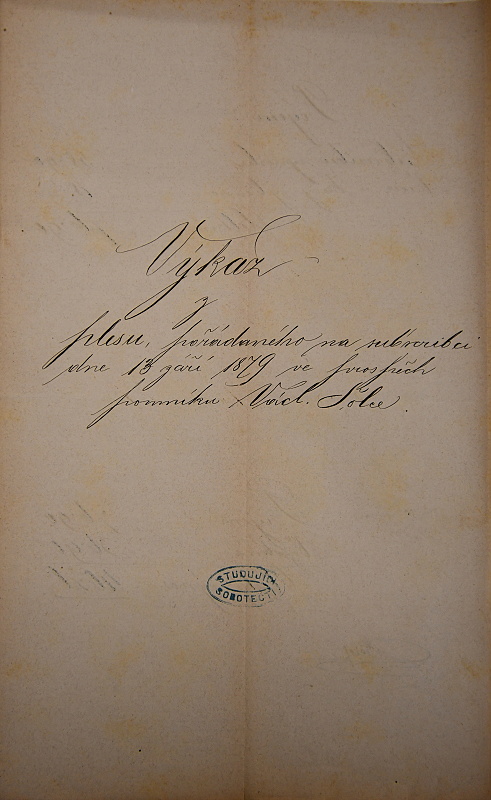 Výkaz
z
plesu, pořádaného na subskribci
dne 13 září 1879 ve prospěch
pomníku Václ. Šolce.
STUDUJÍCÍ
SOBOTEČTÍ